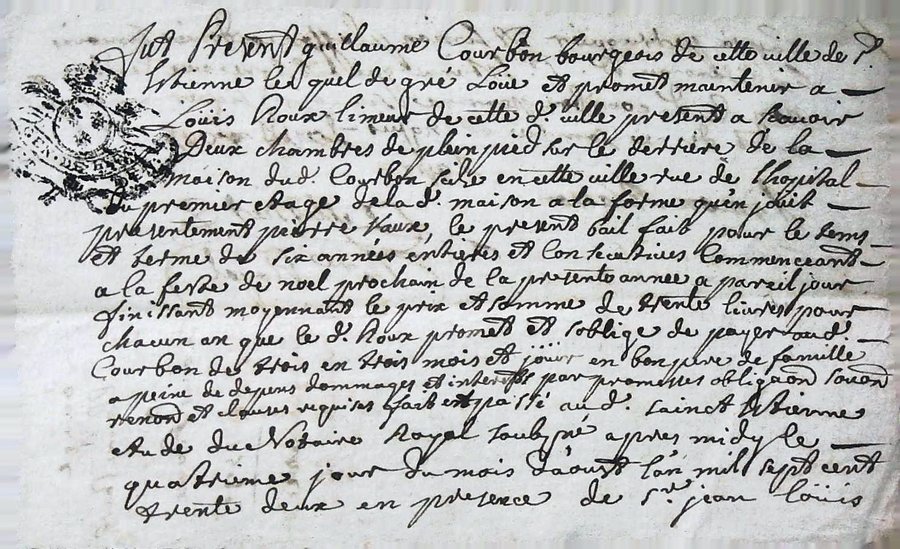 fut Present guillaume Courbon bourgeois de cette ville de St
Etienne lequel de gré Loüe et promet maintenir a
Loüis Roux limeur de cette d. ville present a scavoir
Deux chambres de plein pied sur le derriere de la
maison dud. Courbon size en cette ville rue de lhopital
du premier etage de lad. maison a la forme qu'en joüit
presentement pierre vaux, le present bail fait pour le tems
et terme de six années entieres et consecutives commenceant
a la feste de noel prochain de la presente année a pareil jour
finissant moyennant le prix et somme de trente livres pour
chacun an que le d. Roux promet et soblige de payer aud.
Courbon de trois en trois mois et joüir en bon pere de famille
a peine de depens dommages et interests par promesses obligaon
renond et clauses requises fait et passé aud. sainct Etienne
etude du Notaire Royal soubsne apres midy le
quatrieme jour du mois d'aoust l'an mil sept cent
trente deux en presence de sr. jean loüis